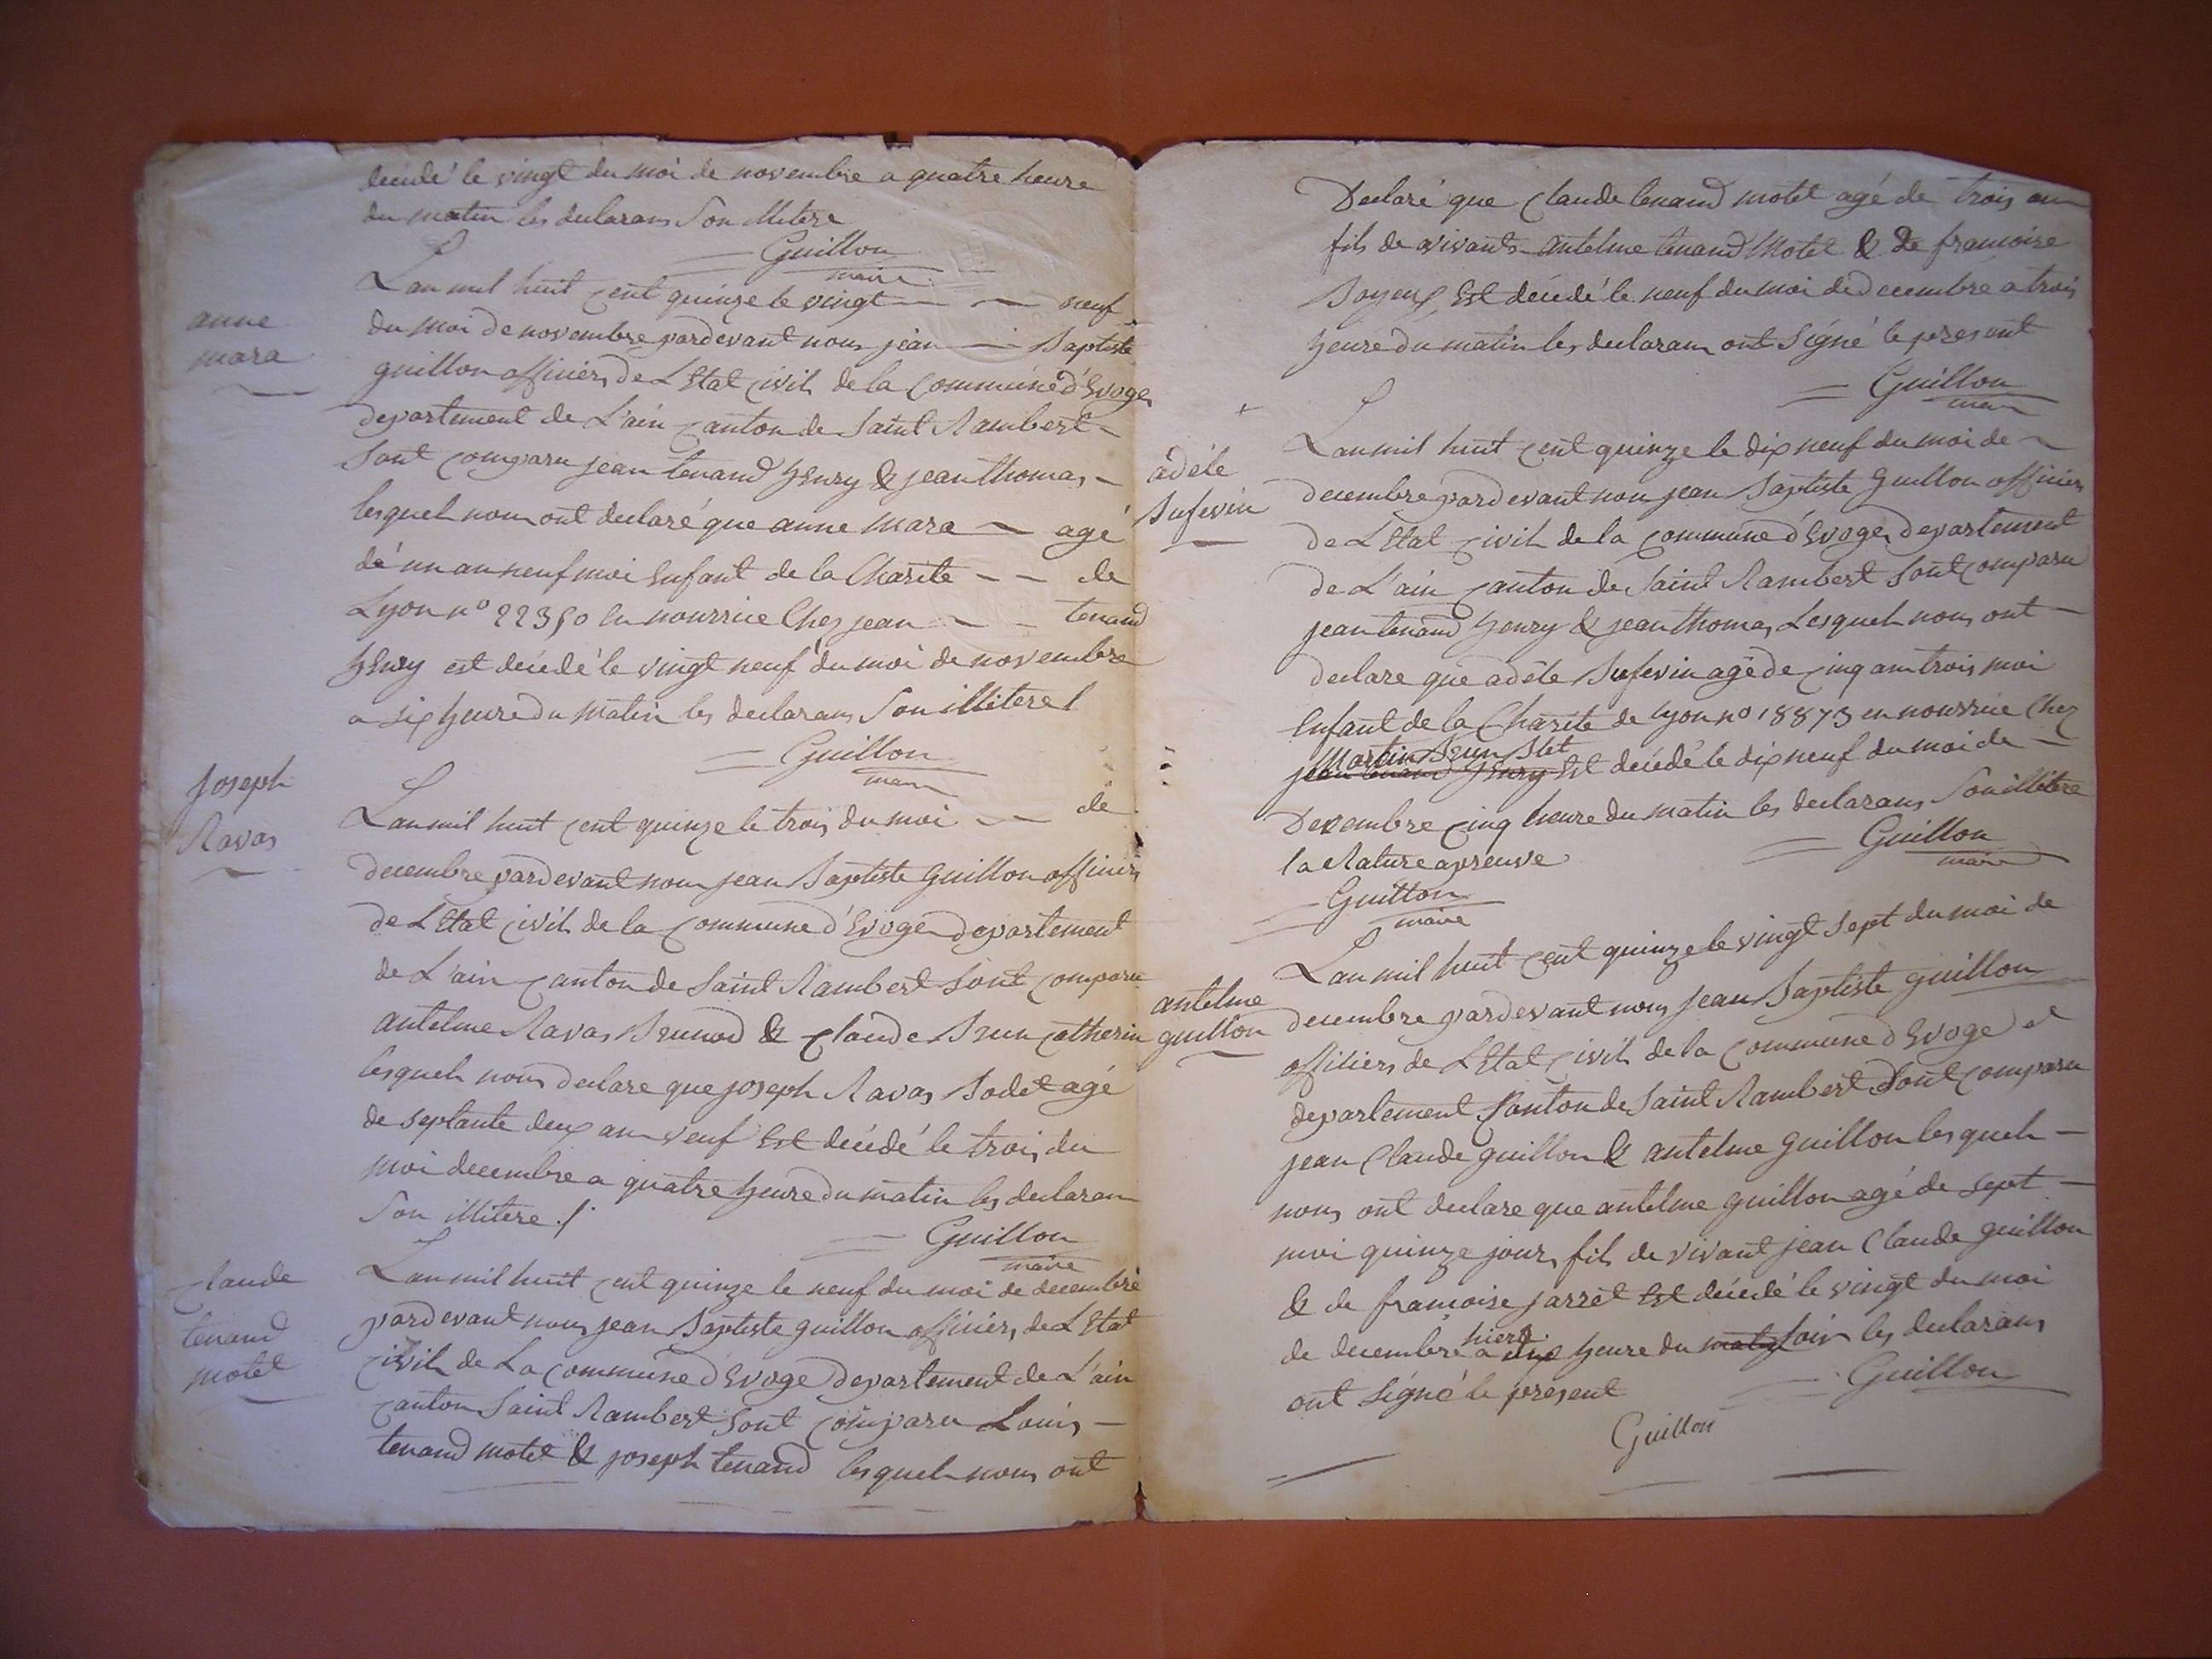 décédé le vingt du moi de novembre a quatre heure
du matin les declarans Son illitere
Guillon
maire
anne
mara
L'an mil huit cent quinze le vingt neuf
du moi de novembre pardevant nous jean Baptiste
guillon officiers de L'Etat Civil de la Commune d'Evoge
departement de L'ain canton de Saint Rambert
Sont comparu jean tenand henry & jean thomas
lesquel nous ont declaré que anne mara agé
de un an neuf moi Enfant de la Charite de
Lyon n° 22350 en nourrice Chez jean tenand
henry est décédé le vingt neuf du moi de novembre
a six heure du matin les declarans Son illitere
Guillon
maire
Joseph
Ravas
L'an mil huit cent quinze le trois du moi de
decembre pardevant nous jean Baptiste Guillon officiers
de L'Etat Civil de la Commune d'Evoge departement
de L'ain canton de Saint Rambert Sont comparu
antelme Ravas Brunod & Claude Brun Catherin
lesquel nous declare que joseph Ravas Bodet agé
de septante deux an veuf Est décédé le trois du
moi decembre a quatre heure du matin les declaran
Son illitere ./.
Guillon
maire
Claude
tenand
motet
L'an mil huit cent quinze le neuf du moi de decembre
pardevant nous jean Baptiste guillon officiers de L'Etat
Civil de La Commune d'Evoge departement de L'ain
canton Saint Rambert Sont comparu Louis
tenand motet & joseph tenand lesquel nous ont
Declaré que Claude tenand motet agé de trois an
fils de vivants antelme tenand Motet & de francoise
Boyeux Est décédé le neuf du moi de decembre a trois
heure du matin les declaran ont Signé le present
Guillon
maire
adéle
Sufevin
L'an mil huit cent quinze le dix neuf du moi de
decembre pardevant nou jean Baptiste Guillon officiers
de L'Etat Civil de la Commune d'Evoge departement
de L'ain canton de Saint Rambert Sont comparu
jean tenand henry & jean thomas Lesquel nous ont
declare que adéle Sufevin agé de cinq an trois moi
Enfant de la Charite de Lyon n° 18873 en nourrice Chez
Martin Brun
jean tenand henry Est décédé le dix neuf du moi de
Decembre cinq heure du matin les declarans Son illitere
Guillon
maire
la Rature apreuve
Guillon
maire
antelme
guillon
L'an mil huit cent quinze le vingt Sept du moi de
decembre pardevant nous jean Baptiste guillon
officiers de L'Etat Civil de la Commune d'Evoge
departement Canton de Saint Rambert Sont comparu
jean Claude guillon & antelme Guillon lesquel
nous ont declare que antelme guillon agé de Sept
moi quinze jours fils de vivant jean Claude guillon
& de francoise jarret Est décédé le vingt du moi
hiere
de decembre a heure du matin Soir les declarans
ont Signé le present
Guillon
Guillon